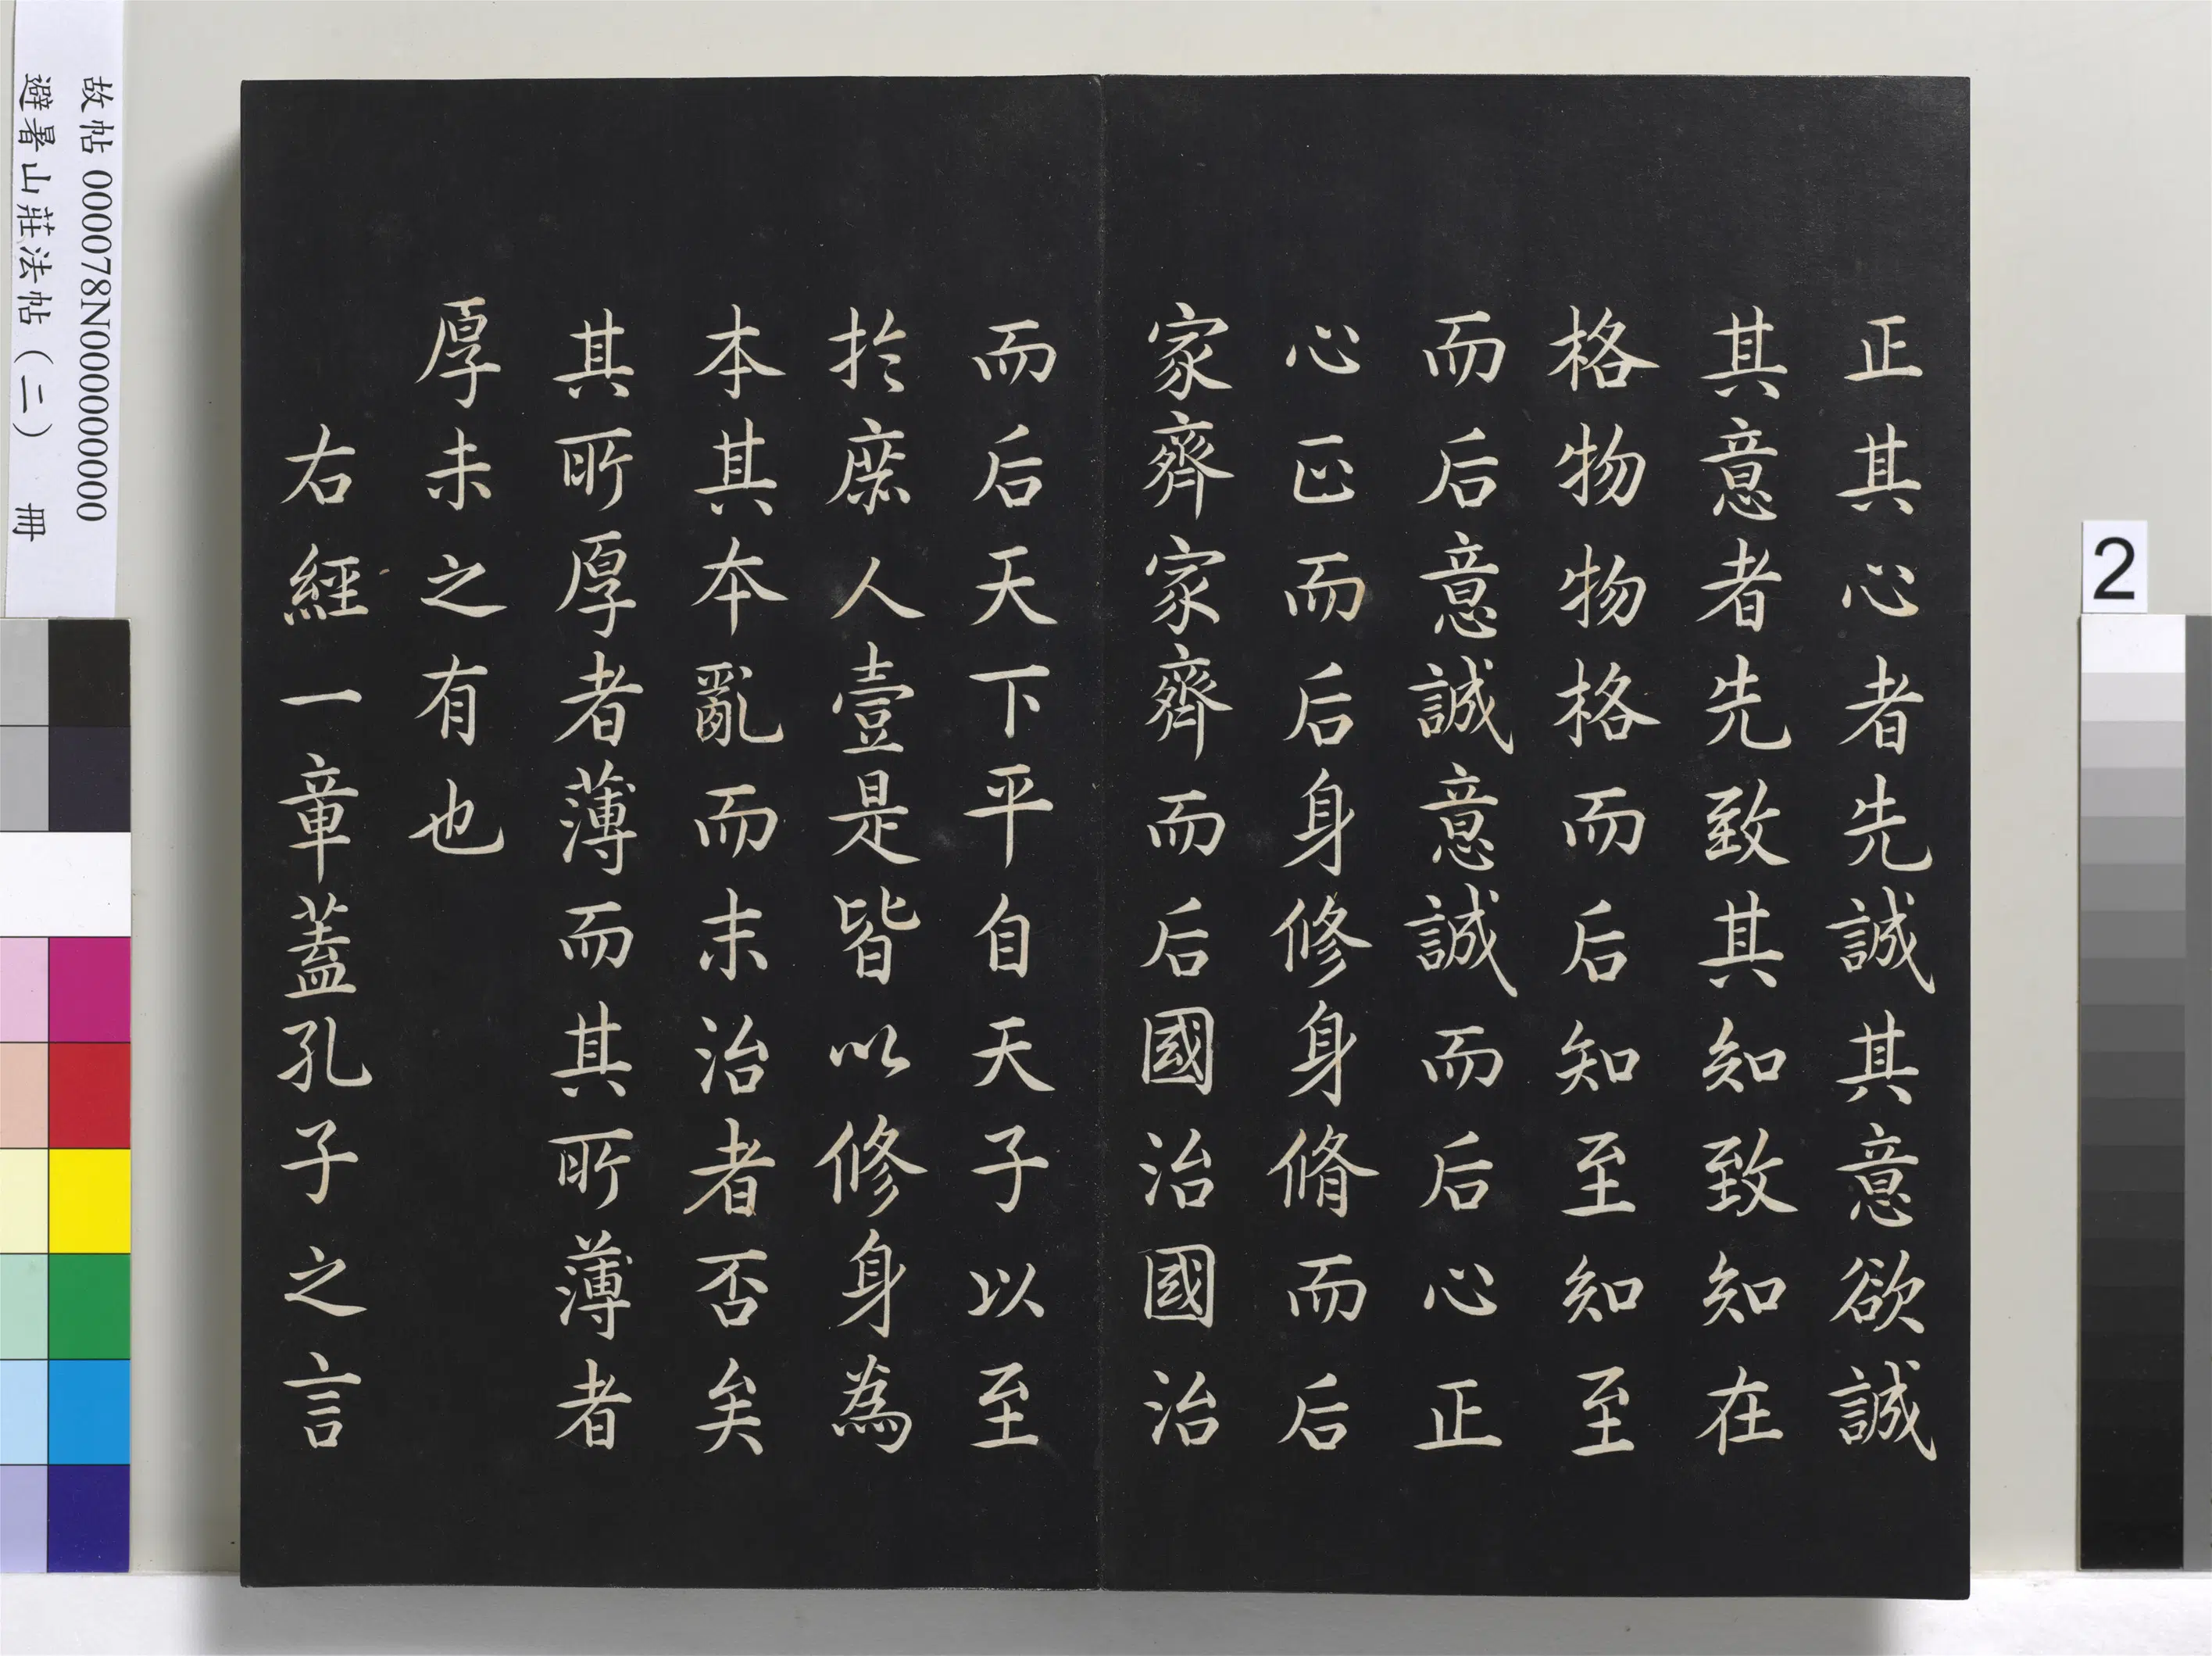 正其心者先誠其意欲誠
其意者先致其知致知在
格物物格而后知至知至
而后意誠意誠而后心正
心正而后身修身脩而后
家齊家齊而后國治國治
而后天下平自天子以至
於庶人壹是皆以修身為
本其本亂而末治者否矣
其所厚者薄而其所薄者
厚未之有也
右經一章蓋孔子之言
故帖 000078N000000000
避暑山莊法帖（二） 冊
2